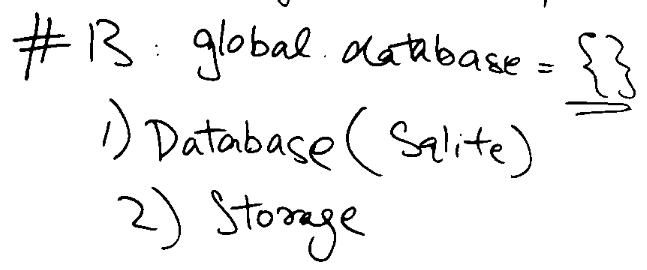 # 13: global database = {}
1) Database (Sqlite)
2) Storage